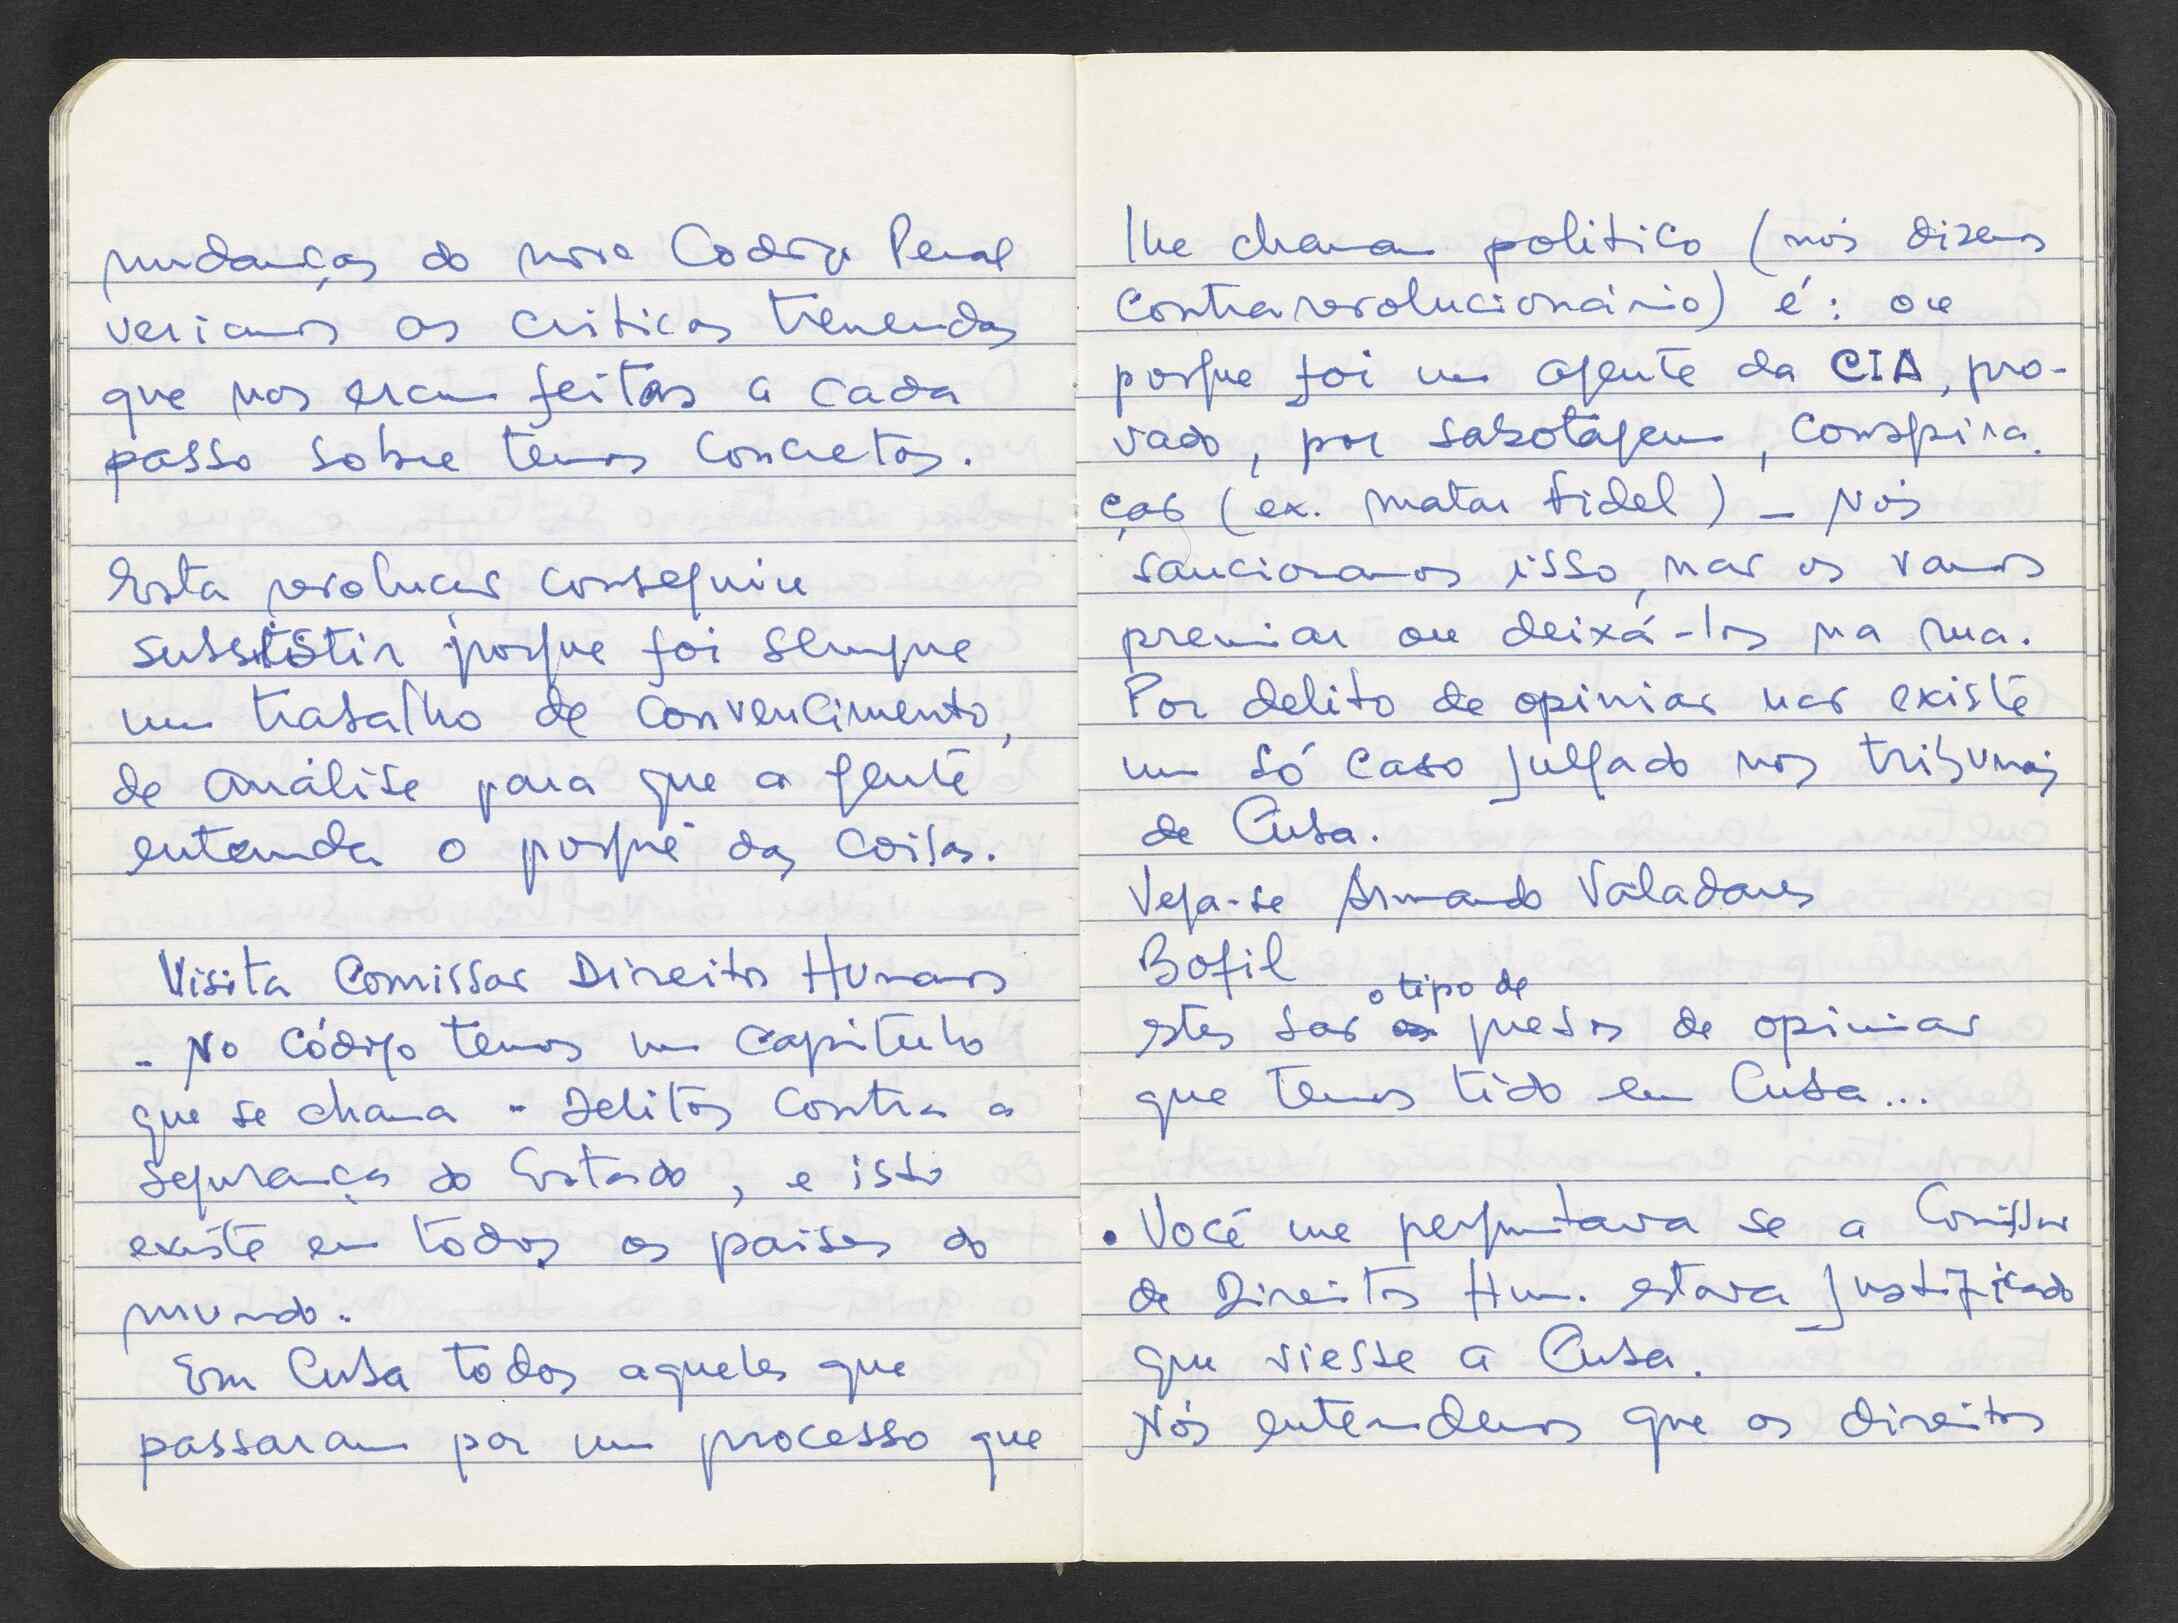 mudanças do novo Codigo Penal
veriamos as criticas tremendas
que nos eram feitas a cada
passo sobre temas concretos.
Esta revolucao conseguiu
subsistir porque foi sempre
um trabalho de convencimento,
de análise para que a gente
entenda o porquê das coisas.
Visita Comissao Direitos Humanos
- No Código temos um capitulo
que se chama - Delitos contra a
segurança do Estado, e isto
existe em todos os paises do
mundo.
Em Cuba todos aqueles que
passaram por um processo que
lhe chamam politico (nós dizemos
contrarevolucionário) é: ou
porque foi um agente da CIA, pro-
vado, por sabotagem, conspira
çao (ex. matar Fidel) - Nós
sancionamos isso, nao os vamos
premiar ou deixá-los na rua.
Por delito de opiniao nao existe
um só caso julgado nos tribunais
de Cuba.
Veja-se Armando Valadares
Bofil
o tipo de
estes sao os presos de opiniao
que temos tido em Cuba...
• Você me perguntava se a Comissao
de Direitos Hum. estava justificado
que viesse a Cuba.
Nós entendemos que os direitos